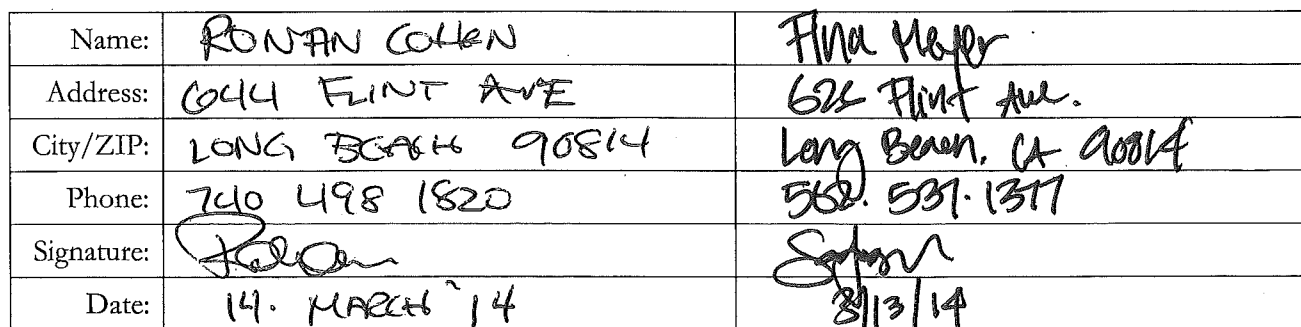 Name: RONAN COHEN Fina Meyer
Address: 644 FLINT AVE 621 Flint Ave.
City/ZIP: LONG BEACH 90814 Long Beach, CA 90814
Phone: 740 498 1820 562. 537. 1377
Signature:
Date: 14. MARCH 14 3/13/14